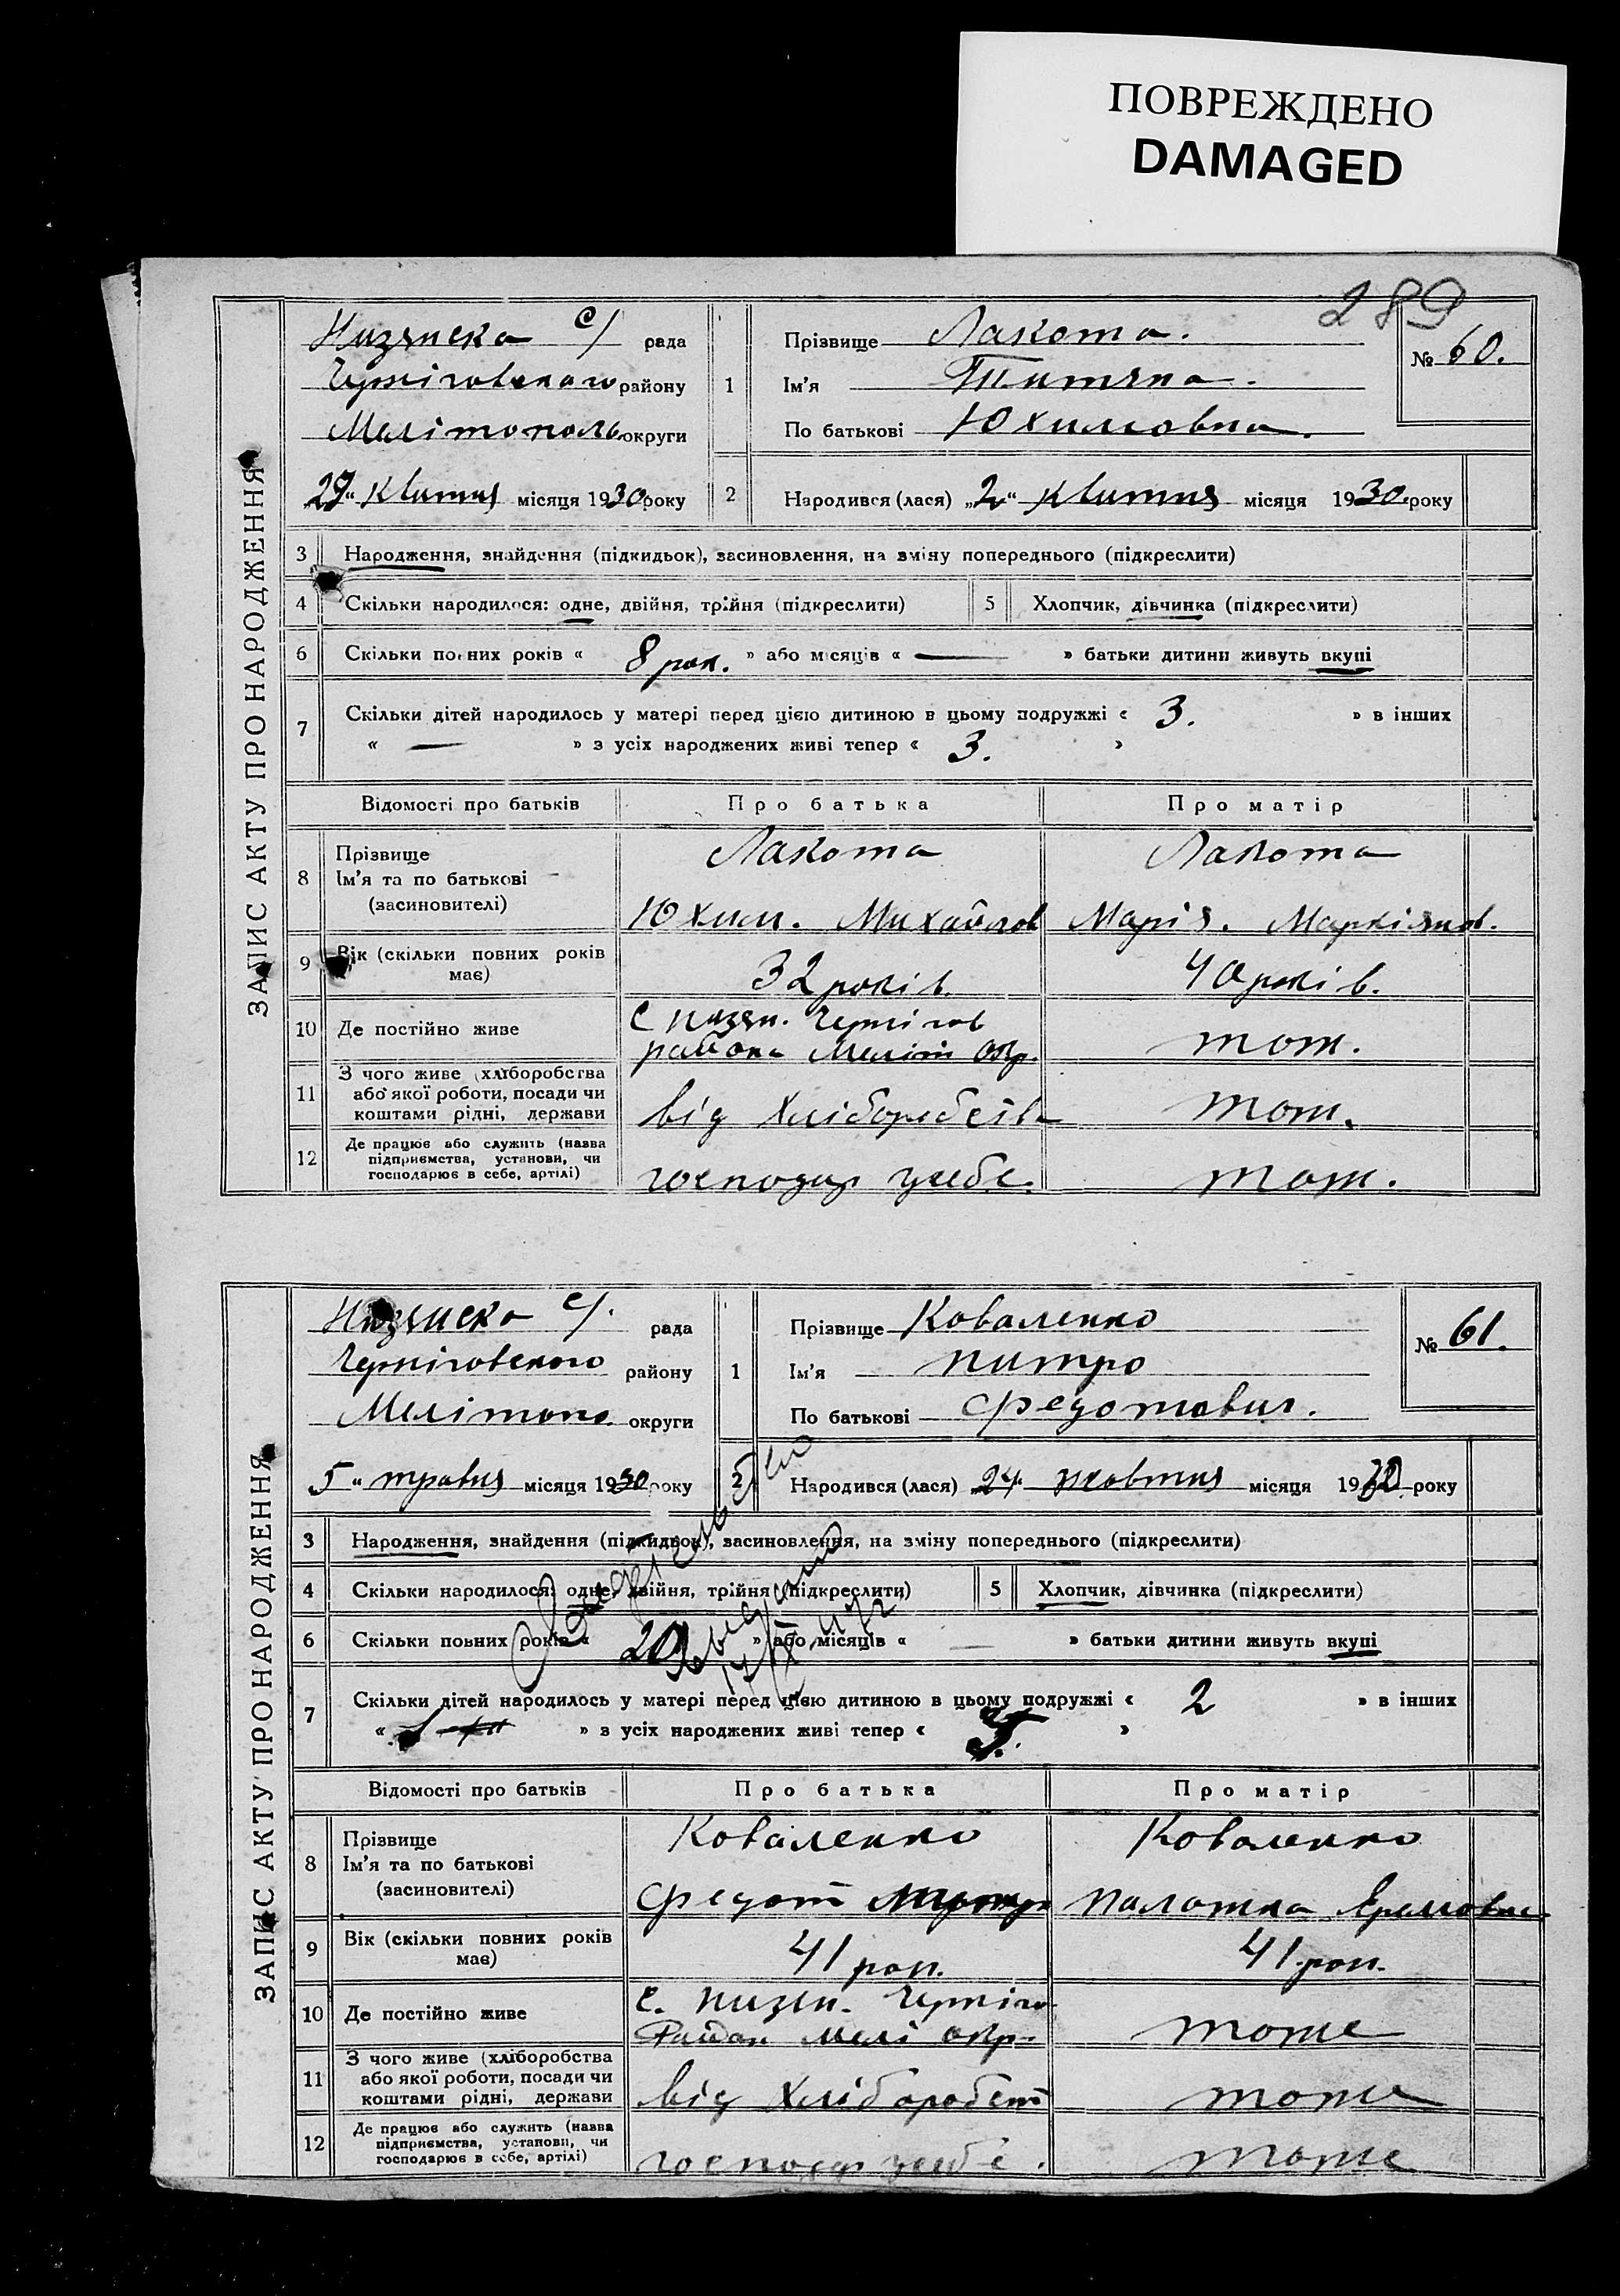 ПОВРЕЖДЕНО
DAMAGED
289
ЗАПИС АКТУ ПРО НАРОДЖЕННЯ
Низянска с/ рада
Чернiговського району
Мелiтополь округи
„29“ Квитня місяця 1930 року
1
Прізвище Лакота.
Ім'я Титяна.
По батькові Юхимовна.
№ 60.
2 Народився (лася) „2“ Квитня місяця 1930. року
3 Народження, знайдення (підкидьок), засиновлення, на зміну попереднього (підкреслити)
4 Скільки народилося: одне, двійня, трійня (підкреслити) 5 Хлопчик, дівчинка (підкреслити)
6 Скільки повних років « 8 рок. » або місяців « — » батьки дитини живуть вкупі
7 Скільки дітей народилось у матері перед цією дитиною в цьому подружжі « 3. » в інших
« — » з усіх народжених живі тепер « 3. »
Відомості про батьків Про батька Про матір
8 Прізвище
Ім'я та по батькові
(засиновителі)
Лакота
Юхим. Михайлов
Лакота
Марія. Маркіянов.
9 Вік (скільки повних років
має)
32 років.
40 років.
10 Де постійно живе
С Низян. Чернігов
района Меліт Окр.
тож.
11 З чого живе (хліборобства
або якої роботи, посади чи
коштами рідні, держави
від Хліборобства
тож.
12 Де працює або служить (назва
підприємства, установи, чи
господарює в себе, артілі)
господар усебе.
тож.
ЗАПИС АКТУ ПРО НАРОДЖЕННЯ
Низянска с/. рада
Чернiговського району
Мелiтопо. округи
5 “ травня місяця 1930 року
1
Прізвище Коваленко
Ім'я Питро
По батькові Федотович.
№ 61.
2 Народився (лася) „24“ жовтня місяця 19 року
3 Народження, знайдення (підкидьок), засиновлення, на зміну попереднього (підкреслити)
4 Скільки народилося: одне, двійня, трійня (підкреслити) 5 Хлопчик, дівчинка (підкреслити)
6 Скільки повних років « 20 » або місяців « — » батьки дитини живуть вкупі
7 Скільки дітей народилось у матері перед цією дитиною в цьому подружжі « 2 » в інших
« » з усіх народжених живі тепер « »
Відомості про батьків Про батька Про матір
8 Прізвище
Ім'я та по батькові
(засиновителі)
Коваленко
Федот
Коваленко
Палашка Яремовна
9 Вік (скільки повних років
має)
41 рок.
41 рок.
10 Де постійно живе
С. Низян. Черніго
Район Мелі окр.
тоже
11 З чого живе (хліборобства
або якої роботи, посади чи
коштами рідні, держави
від Хліборобст
тоже
12 Де працює або служить (назва
підприємства, установи, чи
господарює в себе, артілі)
господар усебе.
тоже